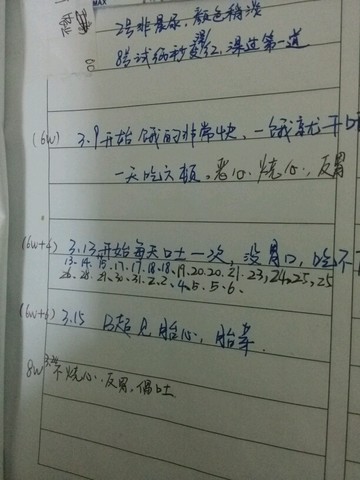 MAX
2号非晨尿,颜色稍淡
8号试纸秒变红,深过第一道
(6w) 3.9开始饿的非常快,一饿就开
一天吃六顿,恶心.烧心.反胃
(6w+4) 3.13开始每天吐一次,没胃口,吃不
13.14.15.17.17.18.18.19.20.20.21.23,24,25,25
26.28.29.30.31.2.2.4.5.5.6.
(6w+6) 3.15 B超见胎心,胎芽.
8w 不烧心.反胃.偶吐